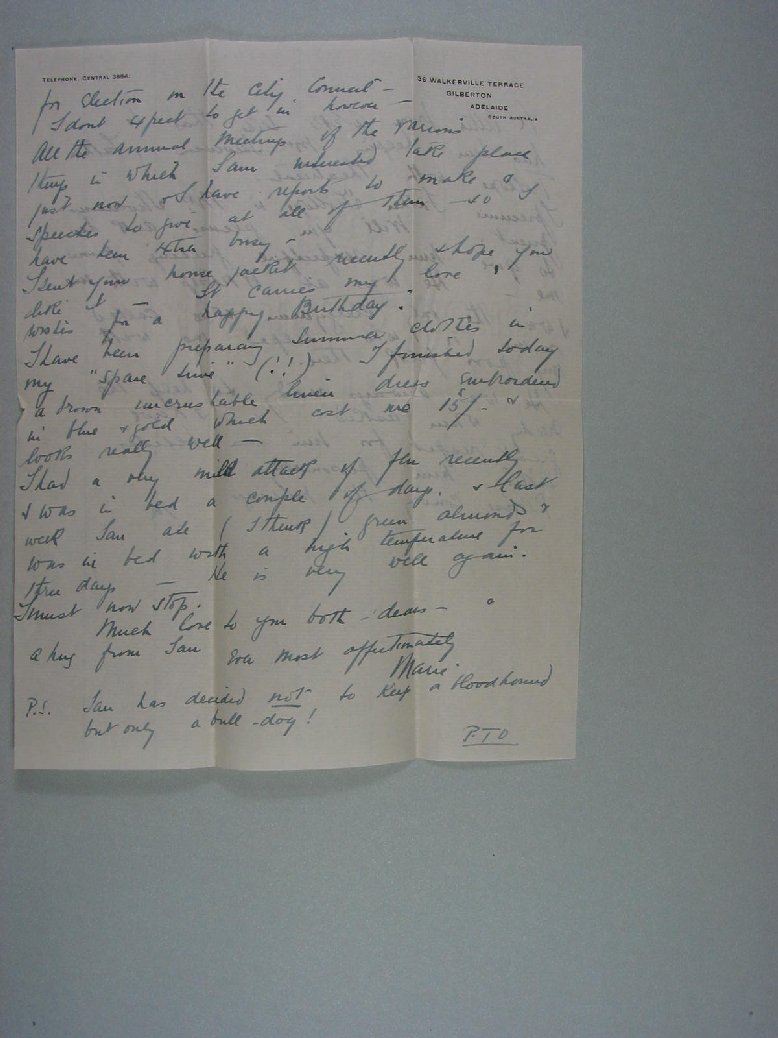 TELEPHONE, CENTRAL 3884.
36 WALKERVILLE TERRACE
GILBERTON
ADELAIDE
SOUTH AUSTRALIA
for Election on the City Council -
I dont expect to get in however -
All the annual Meetings of the various
things in which I am interested take place
just now & I have reports to make &
speeches to give at all of them - so I
have been extra busy -
I sent your house jacket recently & hope you
like it - It carries my love &
wishes for a happy Birthday.
I have been preparing Summer clothes in
my "spare time" (!!) I finished today
a brown uncrushable linen dress embroidered
in blue & gold which cost me 15/- &
looks really well -
I had a very mild attack of flu recently
& was in bed a couple of days. & last
week Ian ate (I think) green almonds &
was in bed with a high temperature for
three days - He is very well again.
I must now stop.
Much love to you both - dears - &
a hug from Ian Ever most affectionately
Marie
P.S. Ian has decided not to keep a bloodhound
but only a bull-dog!
P.T.O